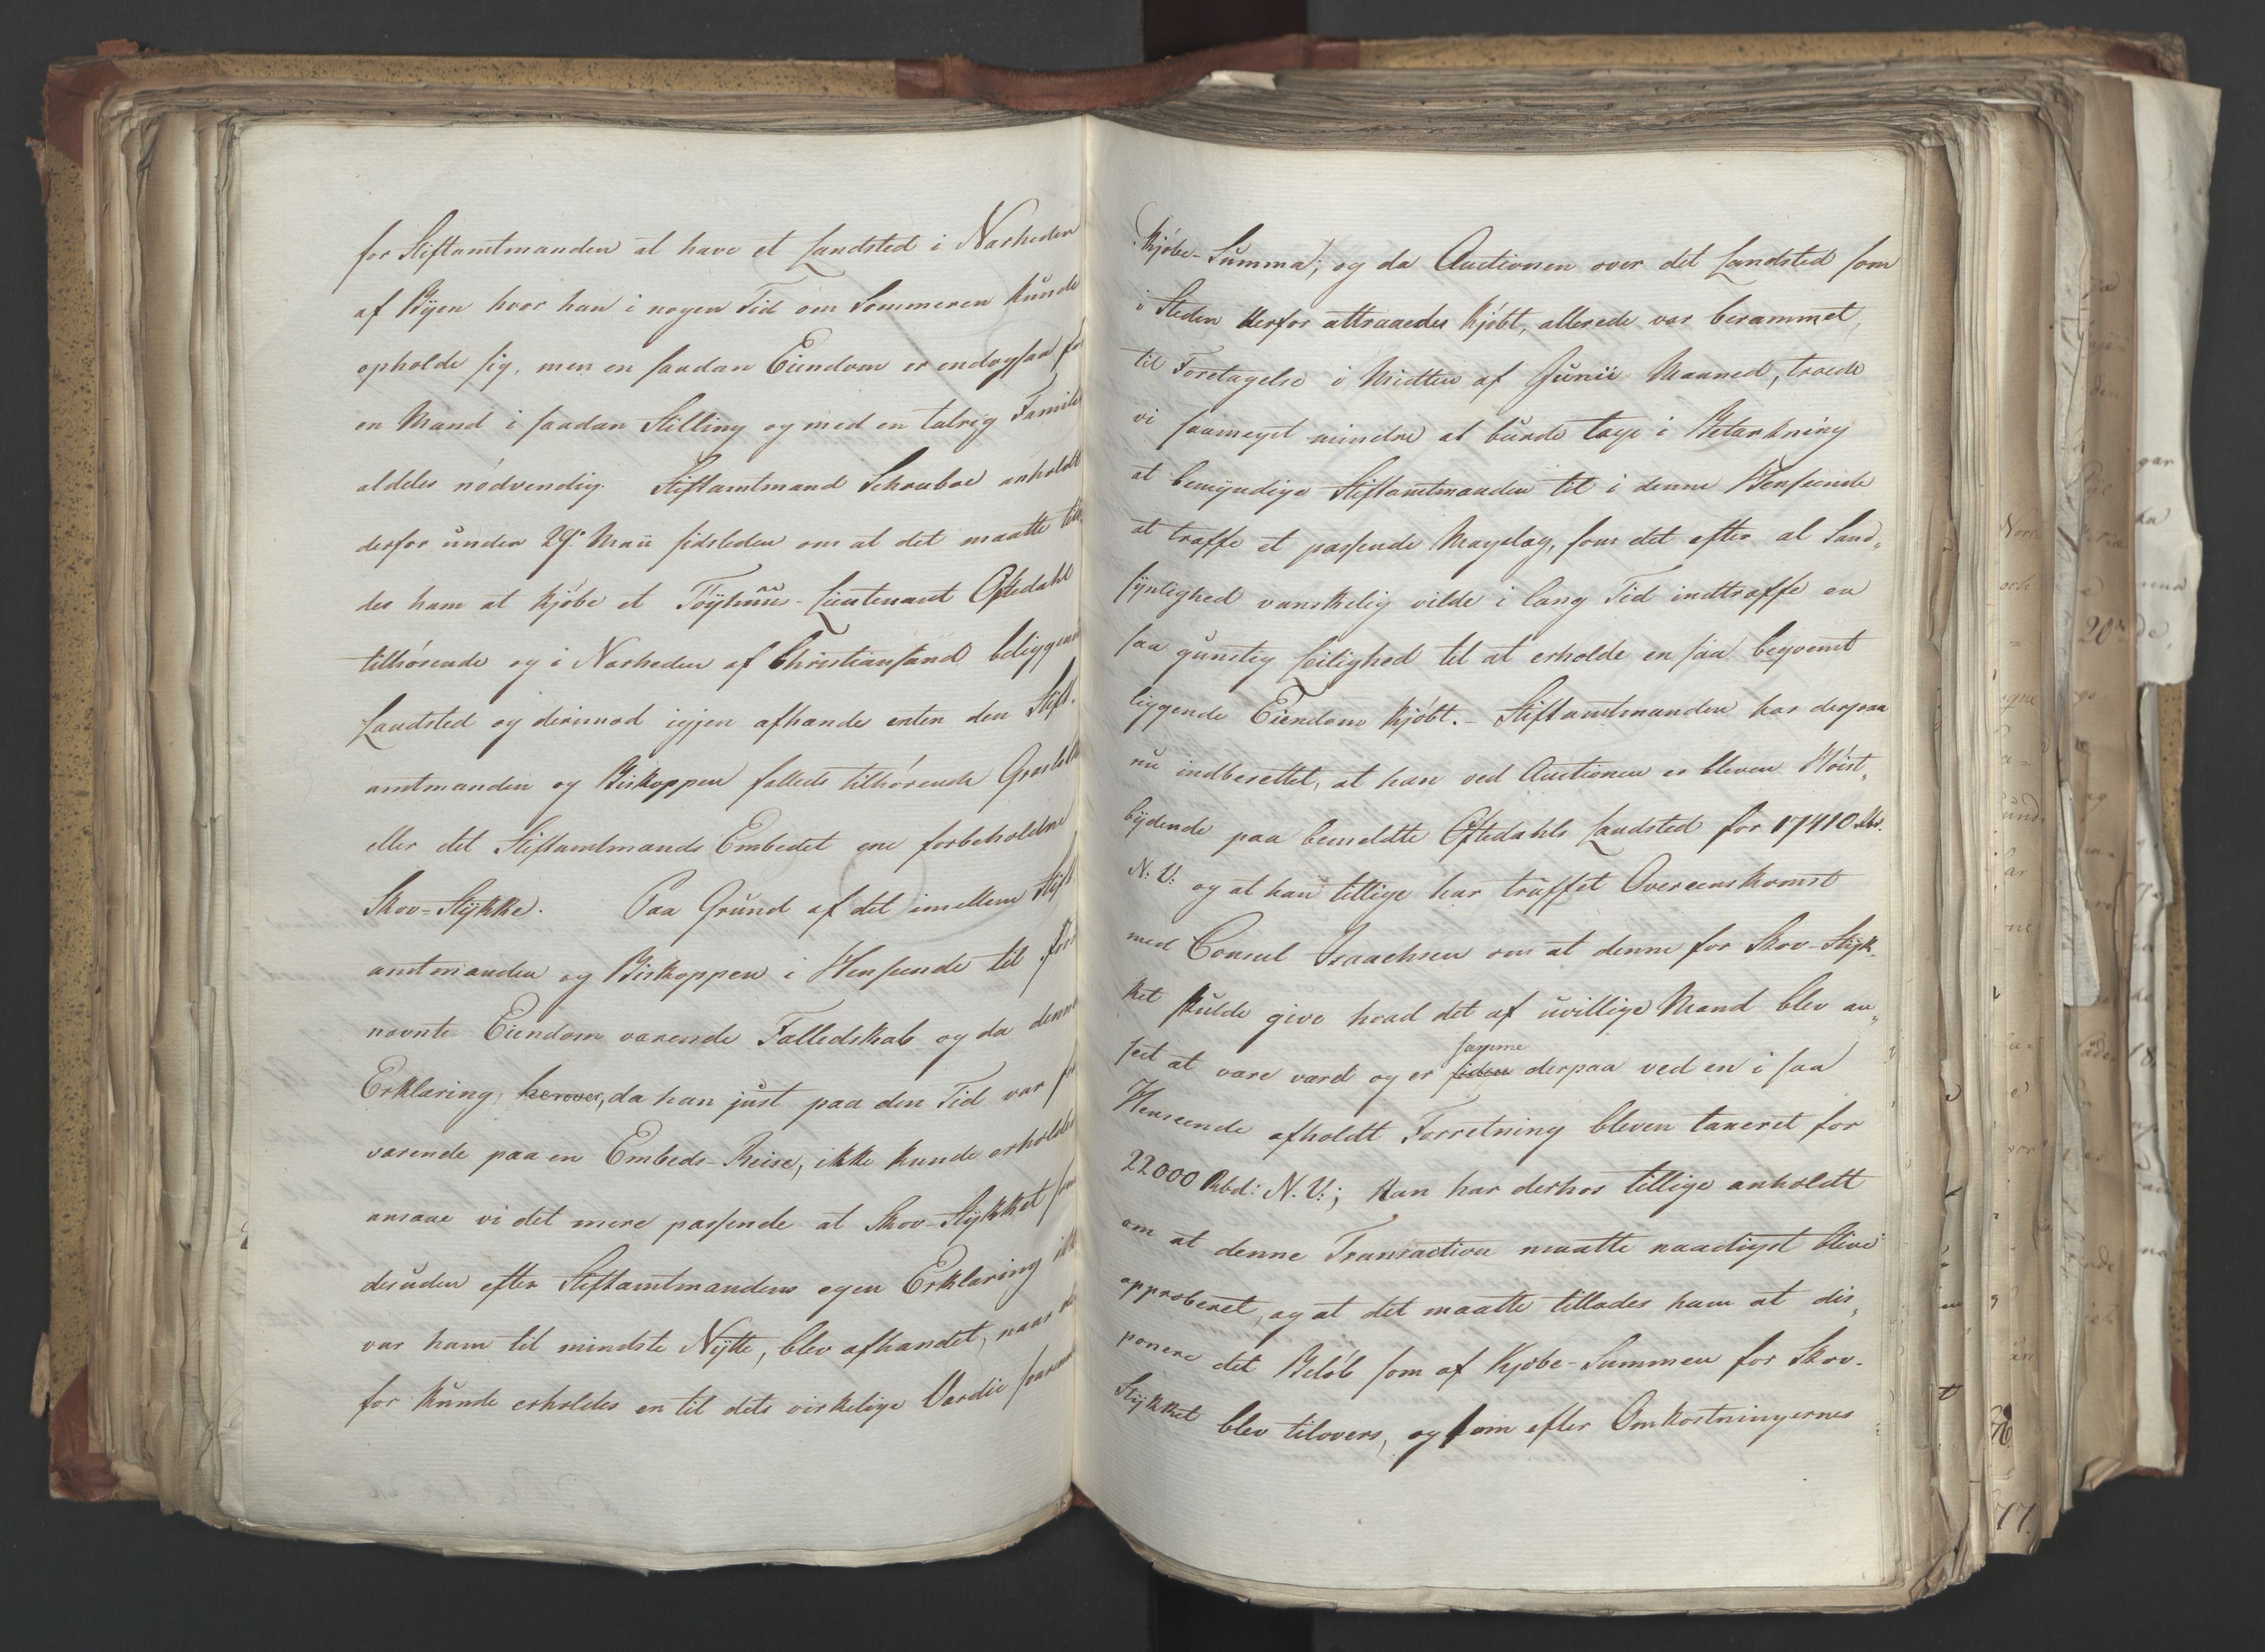 for Stiftamtmanden at have et Landsted i Nærheden
af Byen hvor han i nogen Tid om Sommeren kunde
opholde sig, men en saadan Eiendom er endogsaa for
en Mand i saadan Stilling og med en talrig Familie
aldeles nødvendig. Stiftamtmand Schouboe anholdt
derfor under 29de Maii sidsleden om at det maatte
des ham at kjøbe et Tøyhuus-Lieutenant Oftedahl
tilhørende og i Nærheden af Christiansand beliggende
Landsted og derimod igjen afhænde enten den Stift-
amtmanden og Biskoppen fælleds tilhørende
eller det Stiftamtmands Embedet ene forbeholdne
Skov-Stykke. Paa Grund af det imellem Stift
amtmanden og Biskoppen i Henseende til før
nævnte Eiendom værende Fælledskab og da denne
Erklæring herover, da han just paa den Tid var fra
værende paa en Embeds-Reise, ikke kunde erholdes
ansaae vi det mere passende at Skov-Stykket som
desuden efter Stiftamtmandens egen Erklæring ikke
var ham til mindste Nytte, blev afhændet, naar der
for kunde erholdes en til dets virkelige Værdie svarende
Kjøbe-Summa; og da Auctionen over det Landsted som
i Steden derfor attraaedes kjøbt, allerede var berammet
til Foretagelse i Midten af Junii Maaned, troede
vi saameget mindre at burde tage i Betænkning
at bemyndige Stiftamtmanden til i denne Henseende
at træffe et passende Mageskifte, som det efter al Sand„
synlighed vanskelig vilde i lang Tid indtræffe en
saa gunstig Leilighed til at erholde en saa beqvemt
liggende Eiendom kjøbt. - Stiftamtmanden har derpaa
nu indberettet, at han ved Auctionen er bleven Høist„
bydende paa bemeldte Oftedahls Landsted for 17410 Rbd.
N: V: og at han tillige har truffet Overeenskomst
med Consul Isaachsen om at denne for Skov-Styk-
ket skulde give hvad det af uvillige Mænd blev an„
seet at være værd og er siden samme derpaa ved en i saa
Henseende afholdt Forretning bleven taxeret for
22000 Rbd: N. V:; Han har derhos tillige anholdt
om at denne Transaction maatte naadigst blive
approberet, og at det maatte tillades ham at dis„
ponere det Beløb som af Kjøbe-Summen for Skov-
Stykket blev tilovers, og som efter Omkostningernes